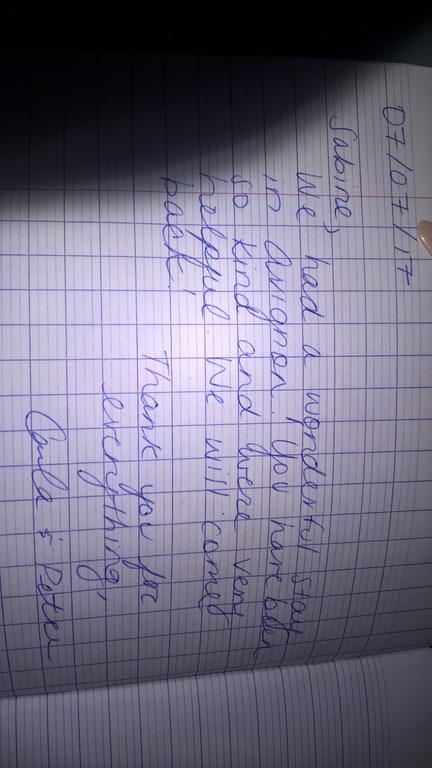 07/07/17
Sabine,
We had a wonderful stay
in Avignon. You have been
so kind and were very
helpful. We will come
back!
Thank you for
everything,
& Peter